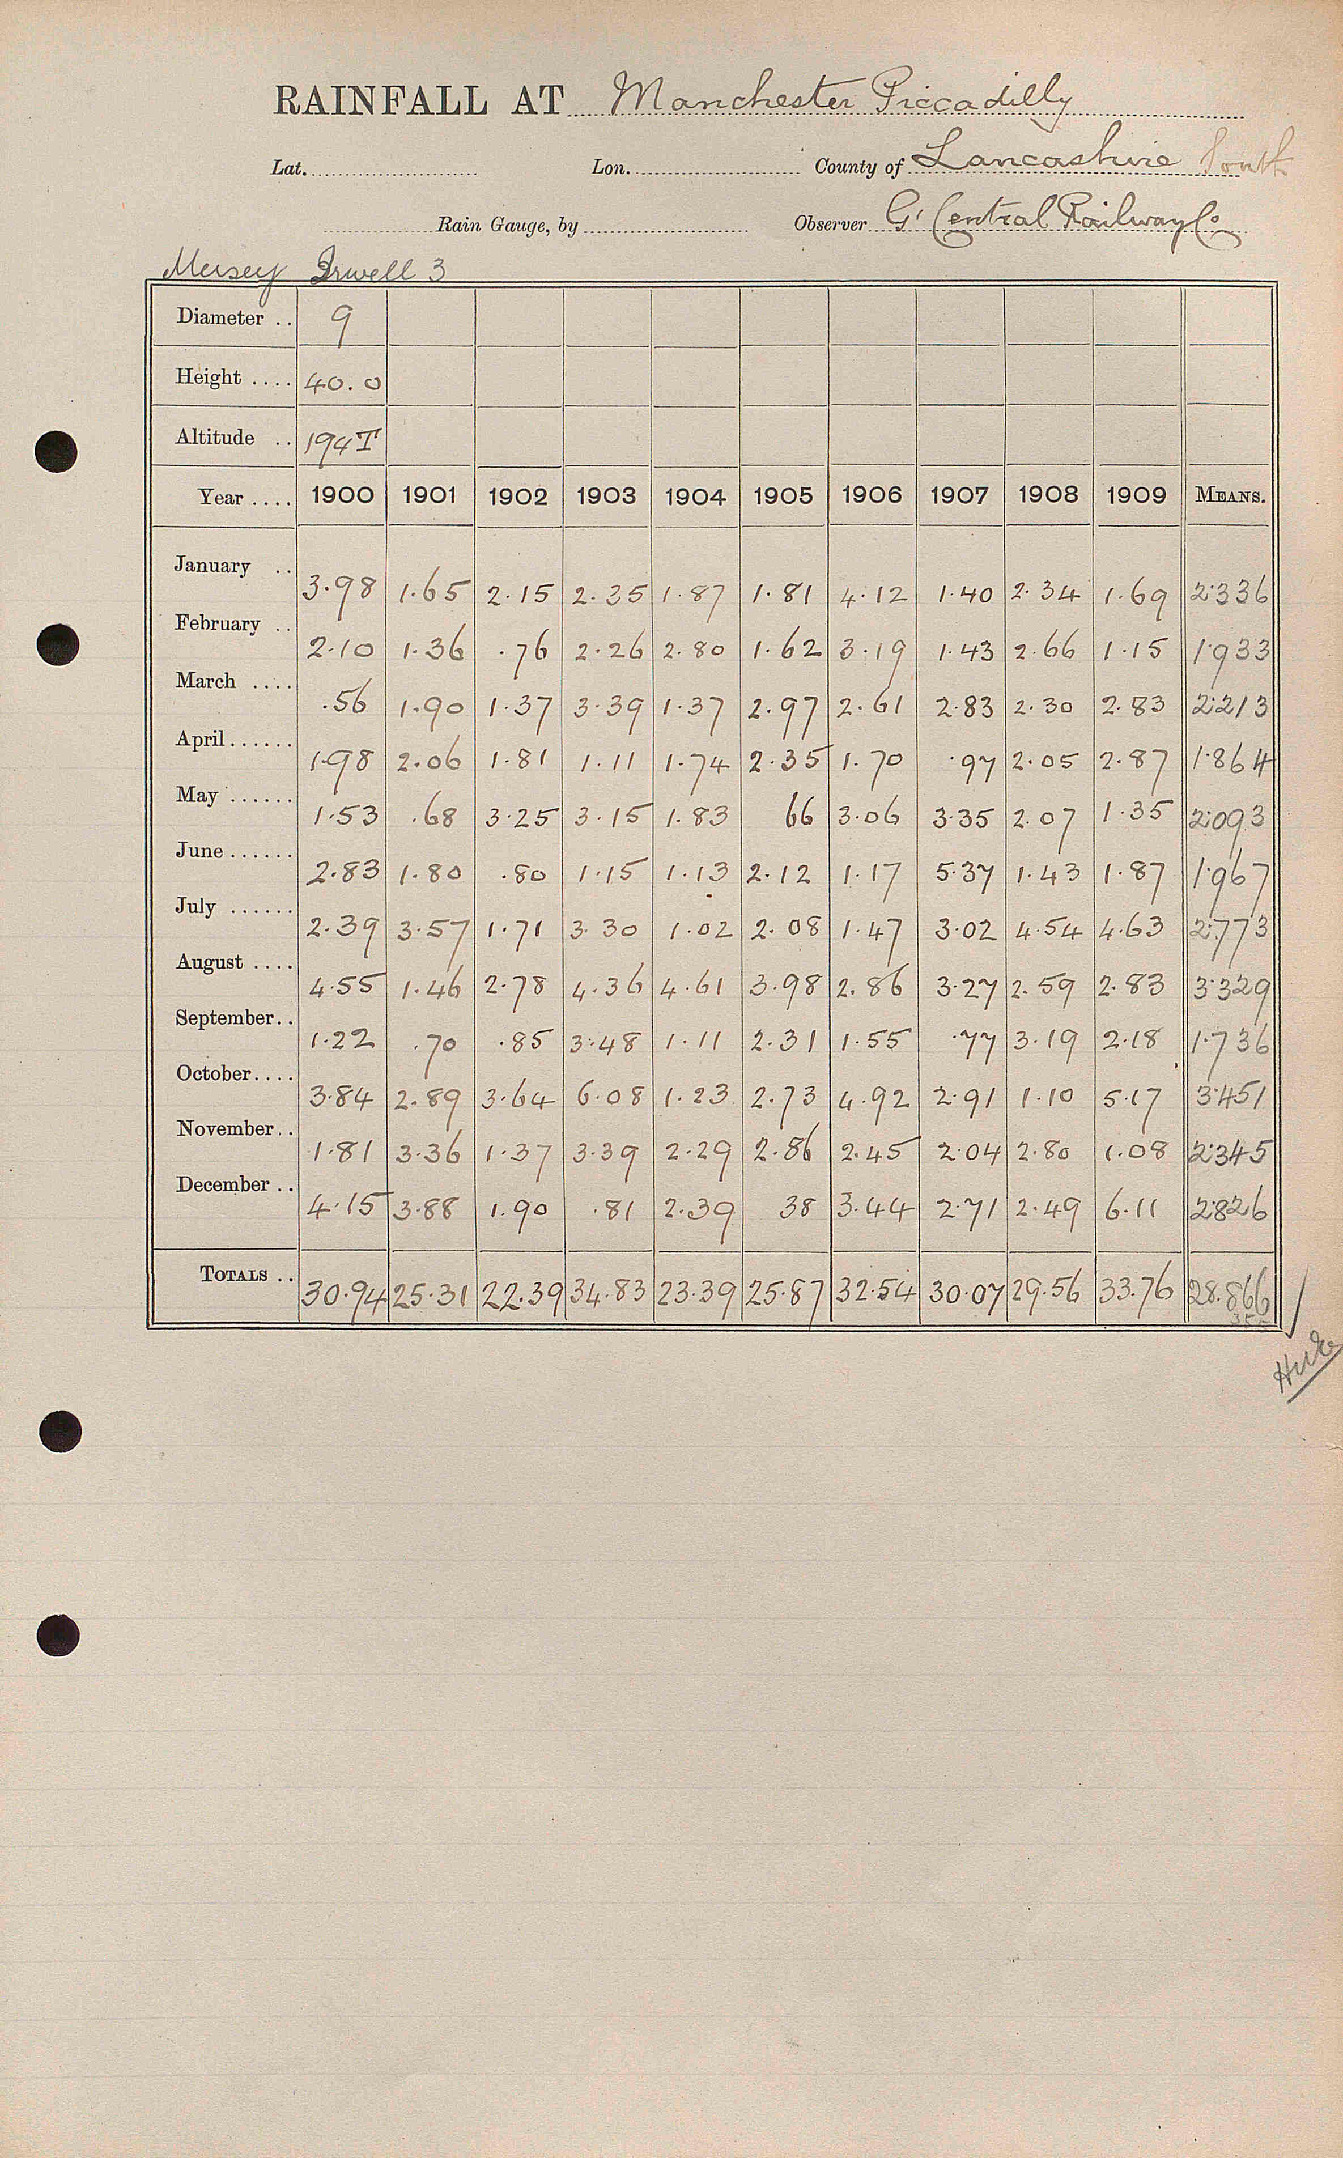 RAINFALL AT Manchester Piccadilly
Lat. Lon. County of Lancashire South
Rain Gauge, by Observer Gt Central Railway Co
Mersey Irwell 3
Diameter .. 9
Height .... 40.0
Altitude .. 194T
Year .... 1900 1901 1902 1903 1904 1905 1906 1907 1908 1909 MEANS.
January .. 3.98 1.65 2.15 2.35 1.87 1.81 4.12 1.40 2.34 1.69 2.336
February .. 2.10 1.36 .76 2.26 2.80 1.62 3.19 1.43 2.66 1.15 1.933
March .... .56 1.90 1.37 3.39 1.37 2.97 2.61 2.83 2.30 2.83 2.213
April ...... 1.98 2.06 1.81 1.11 1.74 2.35 1.70 .97 2.05 2.87 1.864
May ...... 1.53 .68 3.25 3.15 1.83 66 3.06 3.35 2.07 1.35 2.093
June ...... 2.83 1.80 .80 1.15 1.13 2.12 1.17 5.37 1.43 1.87 1.967
July ...... 2.39 3.57 1.71 3.30 1.02 2.08 1.47 3.02 4.54 4.63 2.773
August .... 4.55 1.46 2.78 4.36 4.61 3.98 2.86 3.27 2.59 2.83 3.329
September .. 1.22 .70 .85 3.48 1.11 2.31 1.55 .77 3.19 2.18 1.736
October .... 3.84 2.89 3.64 6.08 1.23 2.73 4.92 2.91 1.10 5.17 3.451
November .. 1.81 3.36 1.37 3.39 2.29 2.86 2.45 2.04 2.80 1.08 2.345
December .. 4.15 3.88 1.90 .81 2.39 38 3.44 2.71 2.49 6.11 2.826
TOTALS .. 30.94 25.31 22.39 34.83 23.39 25.87 32.54 30.07 29.56 33.76 28.866